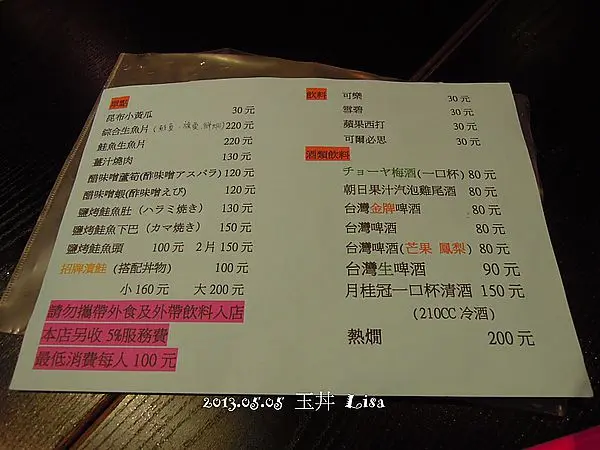 單點
昆布小黃瓜 30 元
綜合生魚片 220 元
鮭魚生魚片 220 元
薑汁燒肉 130 元
醋味噌蘆筍(酢味噌アスパラ) 120 元
醋味噌蝦(酢味噌えび) 120 元
鹽烤鮭魚肚（ハラミ焼き） 130 元
鹽烤鮭魚下巴（カマ焼き） 150 元
鹽烤鮭魚頭 100 元 2 片 150 元
招牌漬鮭 (搭配丼物) 100 元
小 160 元 大 200 元
請勿攜帶外食及外帶飲料入店
本店另收 5%服務費
最低消費每人 100 元
飲料
可樂 30 元
雪碧 30 元
蘋果西打 30 元
可爾必思 30 元
酒類飲料
チョーヤ梅酒(一口杯) 80 元
朝日果汁汽泡雞尾酒 80 元
台灣金牌啤酒 80 元
台灣啤酒 80 元
台灣啤酒(芒果 鳳梨) 80 元
台灣生啤酒 90 元
月桂冠一口杯清酒 150 元
(210CC 冷酒)
熱燗 200 元
2013.05.05 玉丼 Lisa